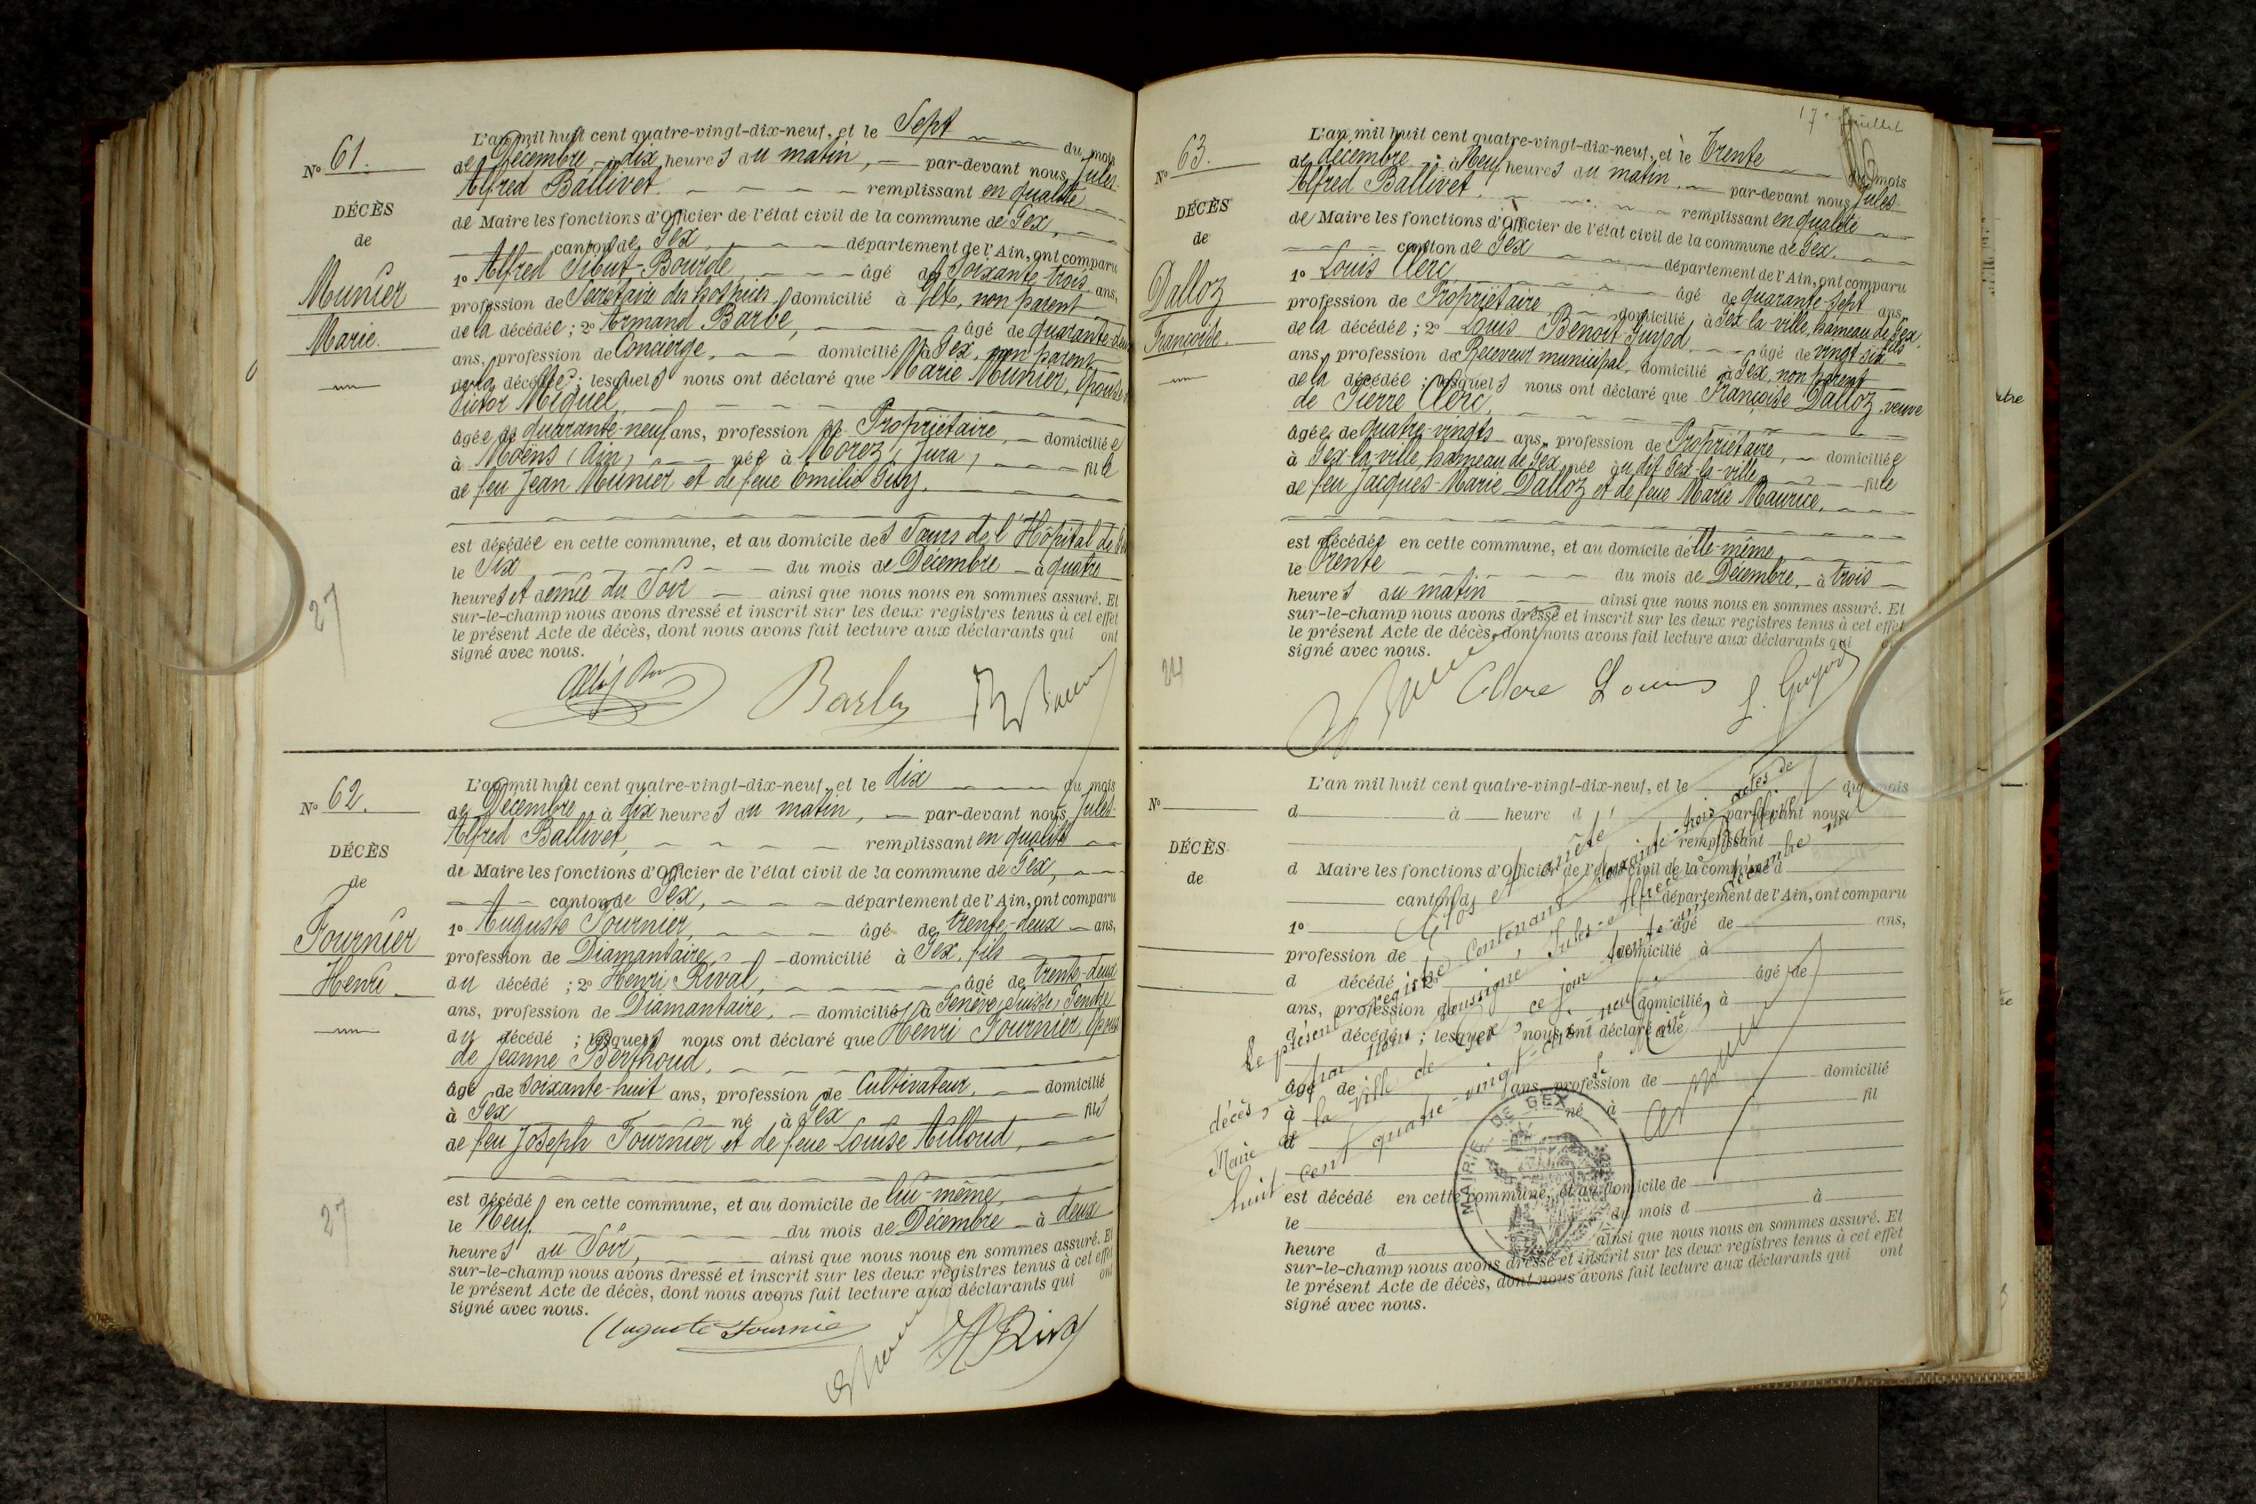 No 61.
DÉCÈS
de
Munier
Marie.
L'an mil huit cent quatre-vingt-dix-neuf, et le Sept du mois
de Décembre à dix heures du matin, par-devant nous Jules-
Alfred Ballivet remplissant en qualité
de Maire les fonctions d'Officier de l'état civil de la commune de Gex,
canton de Gex, département de l'Ain, ont comparu
1o Alfred Sibut-Bourde, âgé de Soixante-trois ans,
profession de Secrétaire des hospices domicilié à Gex, non parent
de la décédée; 2o Armand Barbe, âgé de quarante-deux
ans, profession de Concierge, domicilié à Gex, non parent
de la décédée; lesquels nous ont déclaré que Marie Munier, épouse
Victor Miguel,
âgée de quarante-neuf ans, profession de Propriétaire, domiciliée
à Moëns (Ain) née à Morez (Jura) fille
de feu Jean Munier et de feue Emilie
est décédée en cette commune, et au domicile des Sœurs de l'Hôpital de
le Six du mois de Décembre à quatre
heures et demie du Soir ainsi que nous nous en sommes assuré. Et
sur-le-champ nous avons dressé et inscrit sur les deux registres tenus à cet effet
le présent Acte de décès, dont nous avons fait lecture aux déclarants qui ont
signé avec nous.
27
No 62.
DÉCÈS
de
Fournier
Henri.
L'an mil huit cent quatre-vingt-dix-neuf, et le dix du mois
de Décembre à dix heures du matin, par-devant nous Jules-
Alfred Ballivet, remplissant en qualité
de Maire les fonctions d'Officier de l'état civil de la commune de Gex,
canton de Gex, département de l'Ain, ont comparu
1o Auguste Fournier, âgé de trente-deux ans,
profession de Diamantaire, domicilié à Gex, fils
du décédé; 2o Henri Rival, âgé de trente-deux
ans, profession de Diamantaire, domicilié à Genève, Suisse, Gendre
du décédé; lesquels nous ont déclaré que Henri Fournier, époux
de Jeanne Berthoud,
âgé de Soixante-huit ans, profession de Cultivateur, domicilié
à Gex né à Gex fils
de feu Joseph Fournier et de feue Louise Ailloud,
est décédé en cette commune, et au domicile de lui-même,
le Neuf du mois de Décembre à deux
heures du Soir, ainsi que nous nous en sommes assuré. Et
sur-le-champ nous avons dressé et inscrit sur les deux registres tenus à cet effet
le présent Acte de décès, dont nous avons fait lecture aux déclarants qui ont
signé avec nous.
Auguste Fournier
H Rival
27
17 juillet
No 63.
DÉCÈS
de
Dalloz
Françoise.
L'an mil huit cent quatre-vingt-dix-neuf, et le Trente du mois
de décembre à Neuf heures du matin, par-devant nous Jules-
Alfred Ballivet, remplissant en qualité
de Maire les fonctions d'Officier de l'état civil de la commune de Gex,
canton de Gex département de l'Ain, ont comparu
1o Louis Clerc, âgé de quarante-sept ans,
profession de Propriétaire domicilié à Gex-la-ville, hameau de Gex, fils
de la décédée; 2o Louis Benoit-Guyod, âgé de vingt-six
ans, profession de Receveur municipal, domicilié à Gex, non parent
de la décédée; lesquels nous ont déclaré que Françoise Dalloz, veuve
de Pierre Clerc,
âgée de quatre-vingts ans, profession de Propriétaire, domiciliée
à Gex-la-ville, hameau de Gex née au dit Gex-la-ville fille
de feu Jacques-Marie Dalloz et de feue Marie Maurice,
est décédée en cette commune, et au domicile d'elle-même,
le Trente du mois de Décembre, à trois
heures du matin ainsi que nous nous en sommes assuré. Et
sur-le-champ nous avons dressé et inscrit sur les deux registres tenus à cet effet
le présent Acte de décès, dont nous avons fait lecture aux déclarants qui ont
signé avec nous.
Clerc Louis L. Guyod
No
DÉCÈS
de
L'an mil huit cent quatre-vingt-dix-neuf, et le du mois
d à heure d par-devant nous
remplissant
d Maire les fonctions d'Officier de l'état civil de la commune d
canton d département de l'Ain, ont comparu
1o âgé de ans,
profession de domicilié à
d décédé ; 2o âgé de
ans, profession d domicilié à
d décédé ; lesquel nous ont déclaré que
âgé de ans, profession de domicilié
à né à fil
de
est décédé en cette commune, et au domicile de
le du mois d à
heure d ainsi que nous nous en sommes assuré. Et
sur-le-champ nous avons dressé et inscrit sur les deux registres tenus à cet effet
le présent Acte de décès, dont nous avons fait lecture aux déclarants qui ont
signé avec nous.
Clos et arrêté
le présent registre contenant soixante-trois actes de
décès, par nous soussigné, Jules-Alfred Ballivet
Maire de la ville de Gex, ce jour trente-un décembre mil
huit cent quatre-vingt-dix-neuf.
Le Maire,
MAIRIE DE GEX